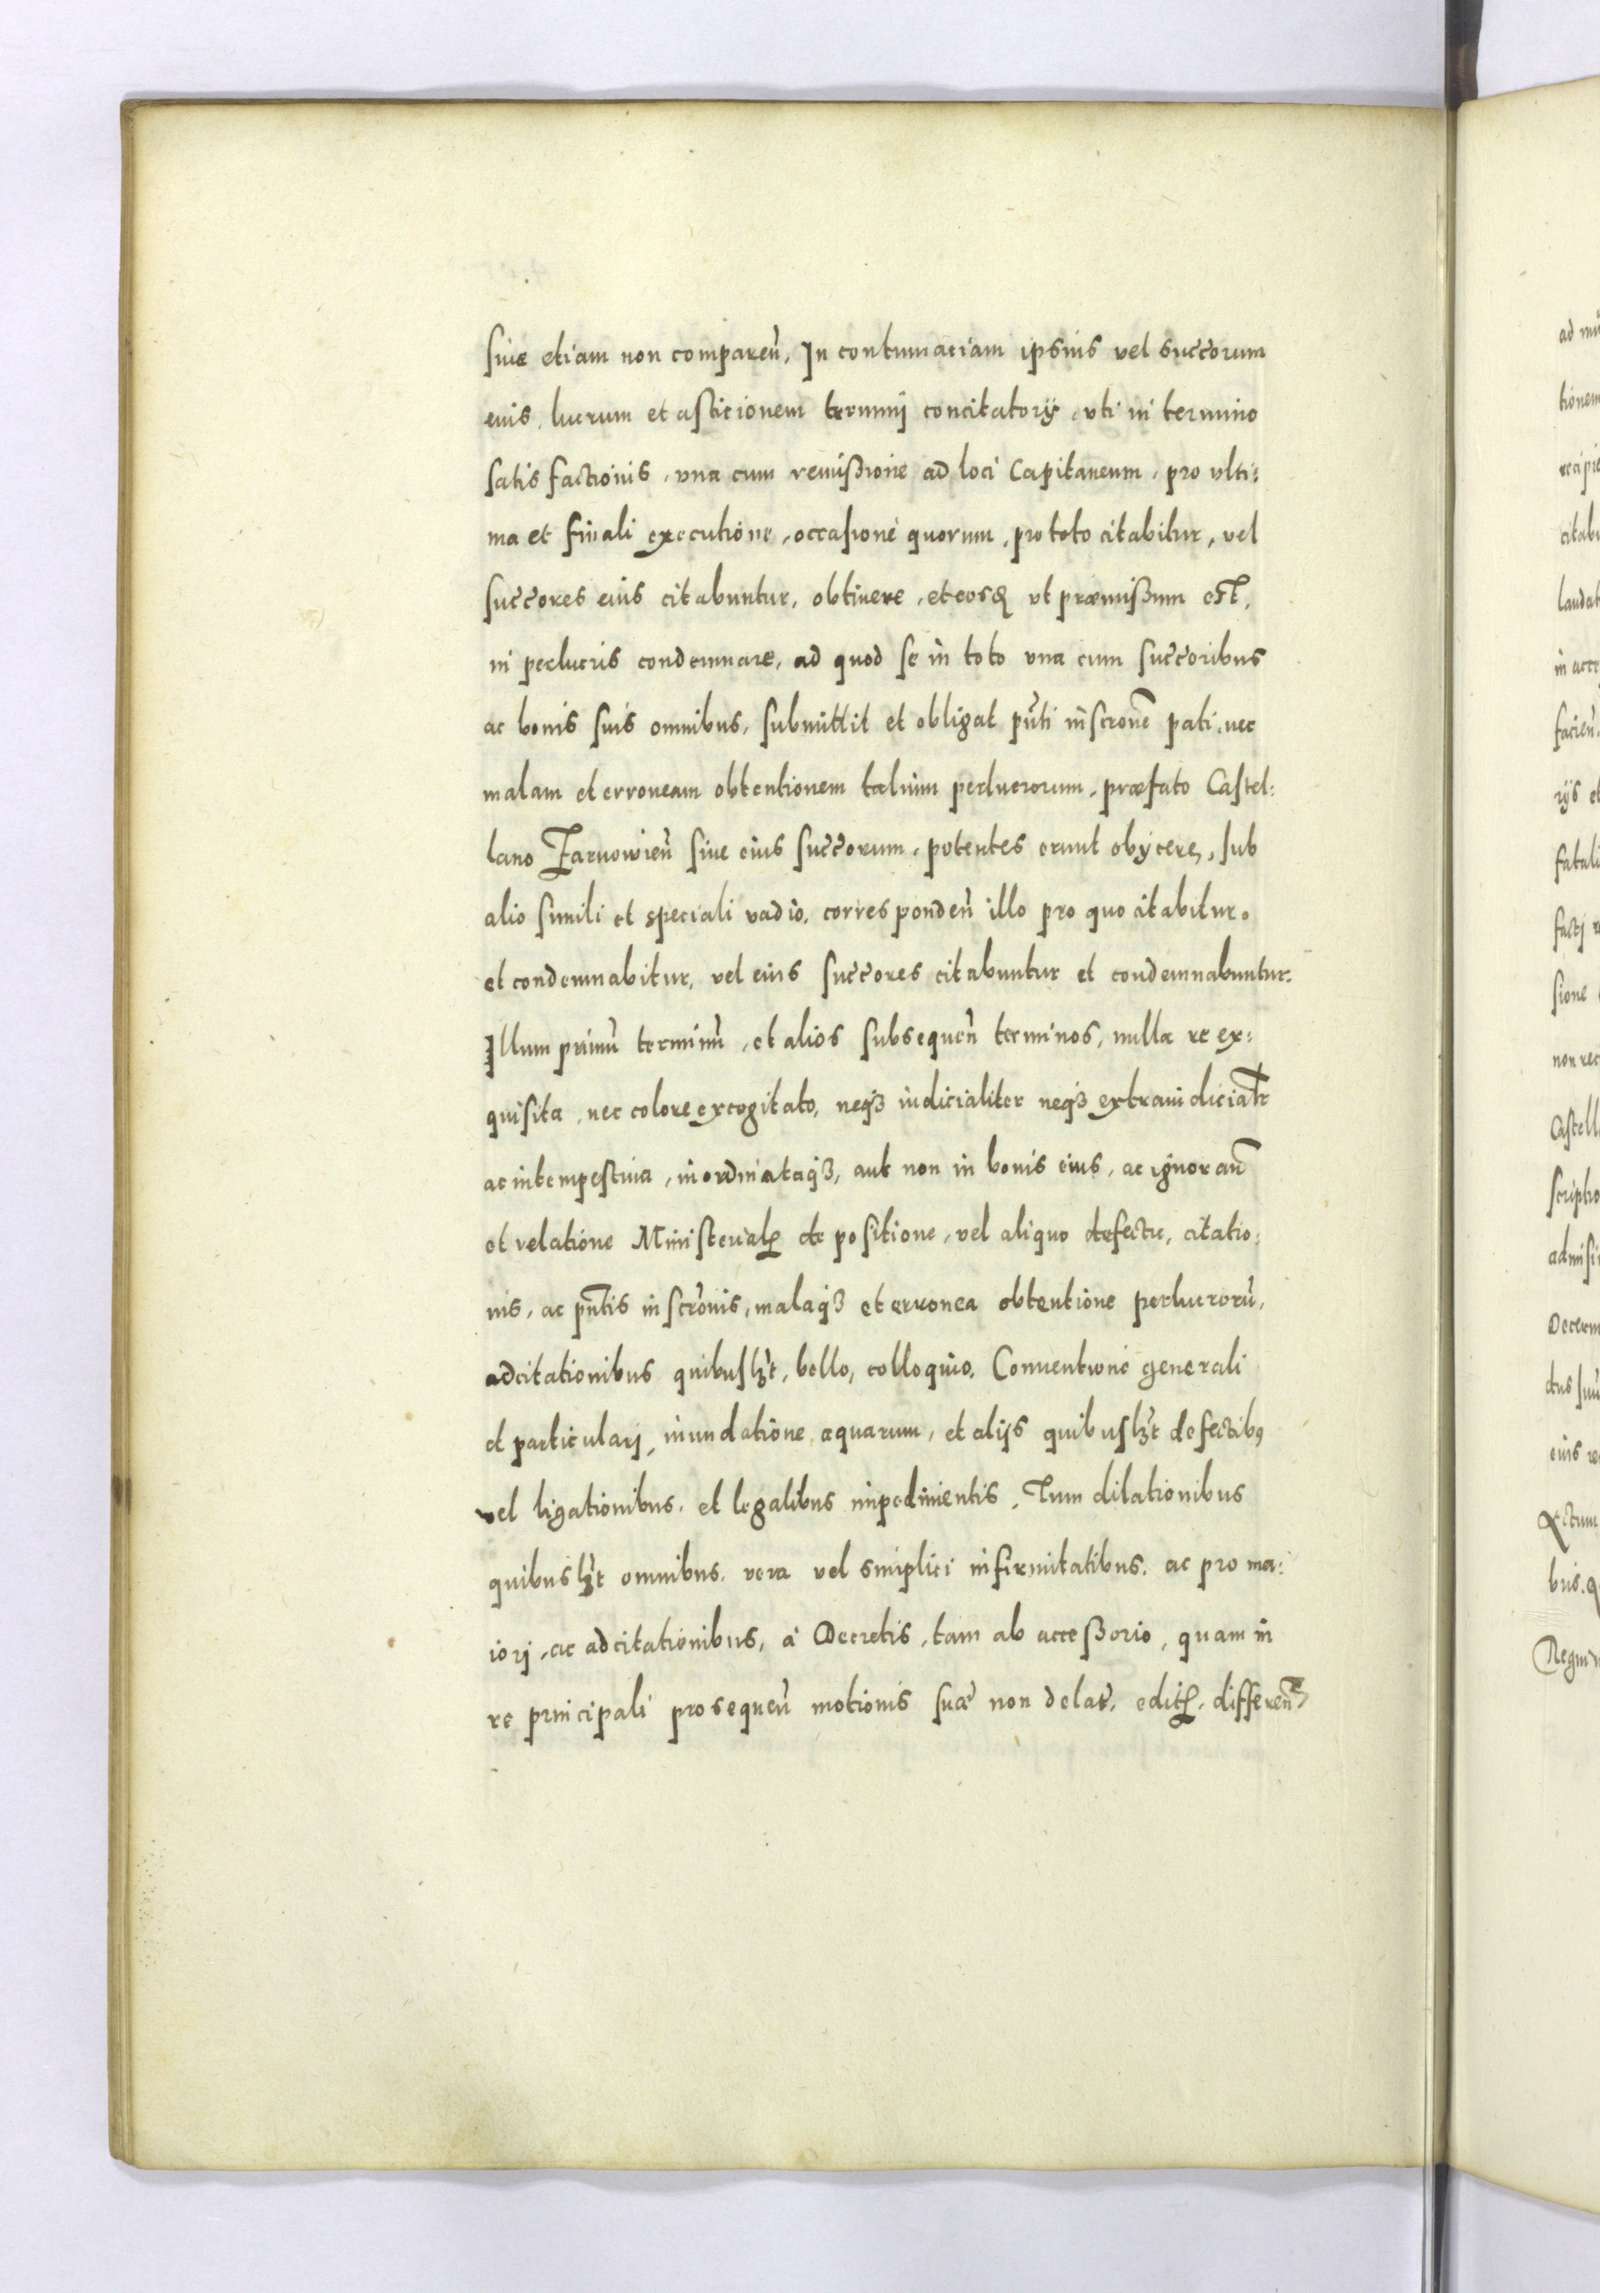 siue etiam non compareñ, In contumaciam ipsius vel succorum
euis, lucrum et asticionem terminj concitatorÿ, vti in termino
satisfactionis, vna cum remißione ad loci Capitaneum, pro vlti:
ma et finali executione, occasione quorum, pro toto citabitur, vel
succores eius citabuntur, obtinere, et eosq ut præmißum est,
in perlucris condemnare, ad quod se in toto vna cum succoribus
ac bonis suis omnibus, submittit et obligat pñti inscrone pati, nec
malam et erroneam obtentionem talium perlucrorum, præfato Castel:
lano Zarnowieñ siue eius succorum, potentes erunt obÿcere, sub
alio simili et speciali vadio, correspondeñ illo pro quo citabitur.
et condemnabitur, vel eius succores citabuntur et condemnabuntur.
Illum primũ terminũ, et alios subsequeñ terminos, nulla re ex:
quisita, nec colore excogitato, neqꝫ iudicialiter neqꝫ extraiudicialr
ac intempestiua, inordinataqꝫ, aut non in bonis eius, ac ignorañ
et relatione Ministerial de positione, vel aliquo defectu, citatio:
nis, ac pñtis inscronis, malaqꝫ et erronea obtentione perlucrorũ,
adcitationibus quibusꝫt, bello, colloquio, Conuentione generali
et particularj, inundatione aquarum, et alijs quibusꝫt defectibꝰ
vel ligationibus, et legalibus impedimentis, Tum dilationibus
quibusꝫt omnibus, vera vel simplici infirmitatibus, ac pro ma:
iorj, ac adcitationibus, á Decretis, tam ab acceßorio, quam in
re principali prosequeñ motionis suæ non delat, edit, differeñ
ad
tionem
recipie
citab
laudat
in acce
facieñ
rijs et
fatali
factj
sione
non rec
Castell
scriptio
admisi
Decern
ctus suũ
eius re
Actum
bris. q
Regni